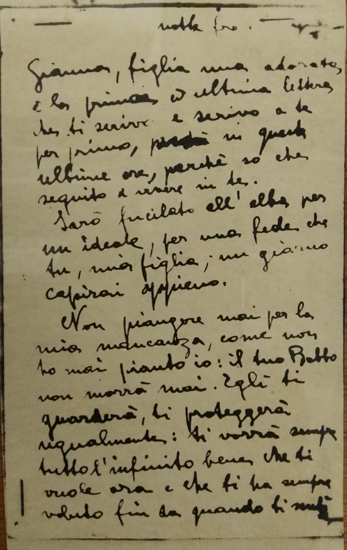 notte fra.
Gianna, figlia mia adorata,
è la prima ed ultima lettera
che ti scrivo e scrivo a te
per prima, in queste
ultime ore, perchè so che
seguito a vivere in te.
Sarò fucilato all'alba per
un ideale, per una fede che
tu, mia figlia, un giorno
capirai appieno.
Non piangere mai per la
mia mancanza, come non
ho mai pianto io: il tuo Babbo
non morrà mai. Egli ti
guarderà, ti proteggerà
ugualmente: ti vorrà sempre
tutto l'infinito bene che ti
vuole ora e che ti ha sempre
voluto fin da quando ti